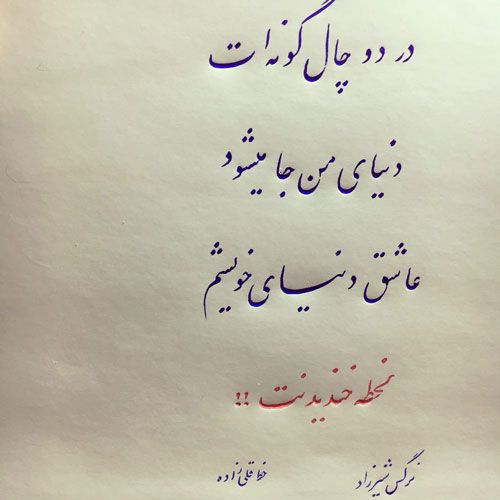 در دو چال گونه ات
دنیای من جا میشود
عاشق دنیای خویشم
لحظه خندیدنت !!
نرگس شیرزاد خط قلی زاده